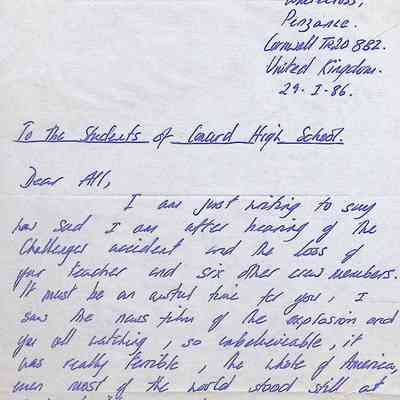 Penzance.
Cornwall TR20 8B2.
United Kingdom.
29. 1-86.
To The Students of Concord High School.
Dear All,
I am just writing to say
how sad I am after hearing of the
Challenger accident and the loss of
your teacher and six other crew members.
It must be an awful time for you, I
saw the news film of the explosion and
you all watching, so unbelieveable, it
was really terrible, the whole of America,
even most of the world stood still at